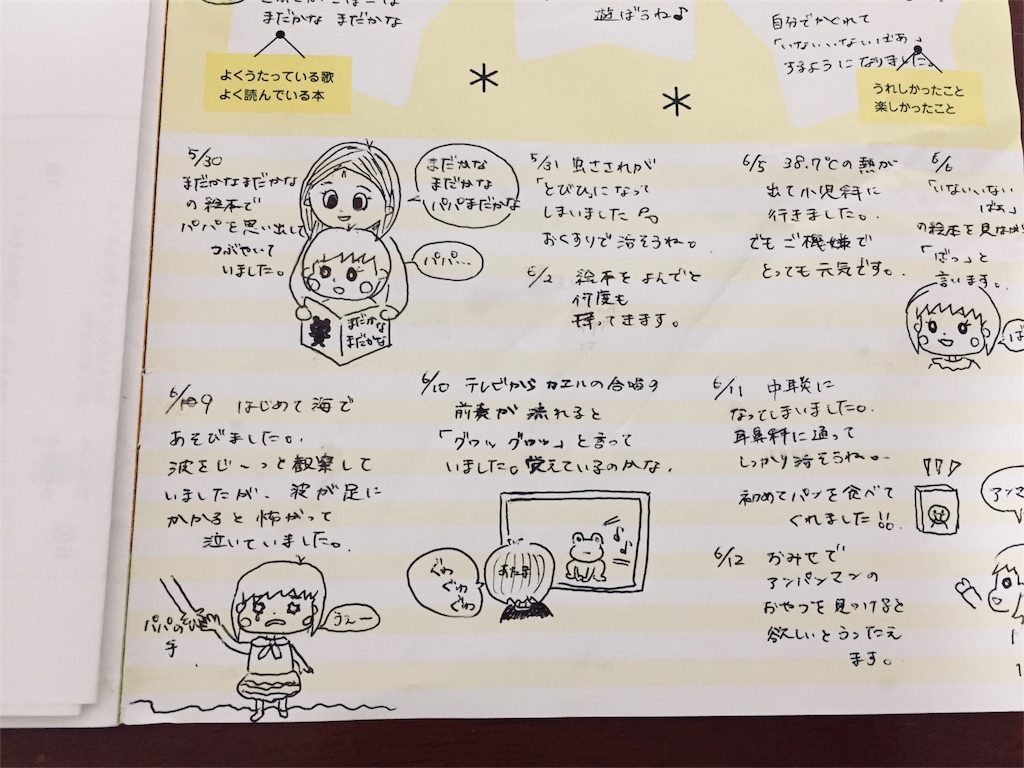 まだかな まだかな
遊ぼうね♪
自分でかくれて
「いないいないばぁ」
するようになりました。
よくうたっている歌
よく読んでいる本
うれしかったこと
楽しかったこと
5/30
まだかなまだかな
の絵本で
パパを思い出して
つぶやいて
いました。
まだかな
まだかな
パパまだかな
パパ…
まだかな
まだかな
5/31 虫さされが
「とびひ」になって
しまいました
おくすりで治そうね。
6/2 絵本をよんでと
何度も
持ってきます。
6/5 38.7℃の熱が
出て小児科に
行きました。
でもご機嫌で
とっても元気です。
6/6
「いないいない
ばぁ」
の絵本を見
「ばっ」と
言います。
ば
6/9 はじめて海で
あそびました。
波をじ〜っと観察して
いましたが、波が足に
かかると怖がって
泣いていました。
パパの
手
うえー
6/10 テレビからカエルの合唱の
前奏が流れると
「グワッグワッ」と言って
いました。覚えているのかな。
ぐわ
ぐわ
ぐわ
あたま
6/11 中耳炎に
なってしまいました。
耳鼻科に通って
しっかり治そうね。
初めてパンを食べて
くれました!!
アンマ
6/12 おみせで
アンパンマンの
おやつを見つけると
欲しいとうったえ
ます。
1